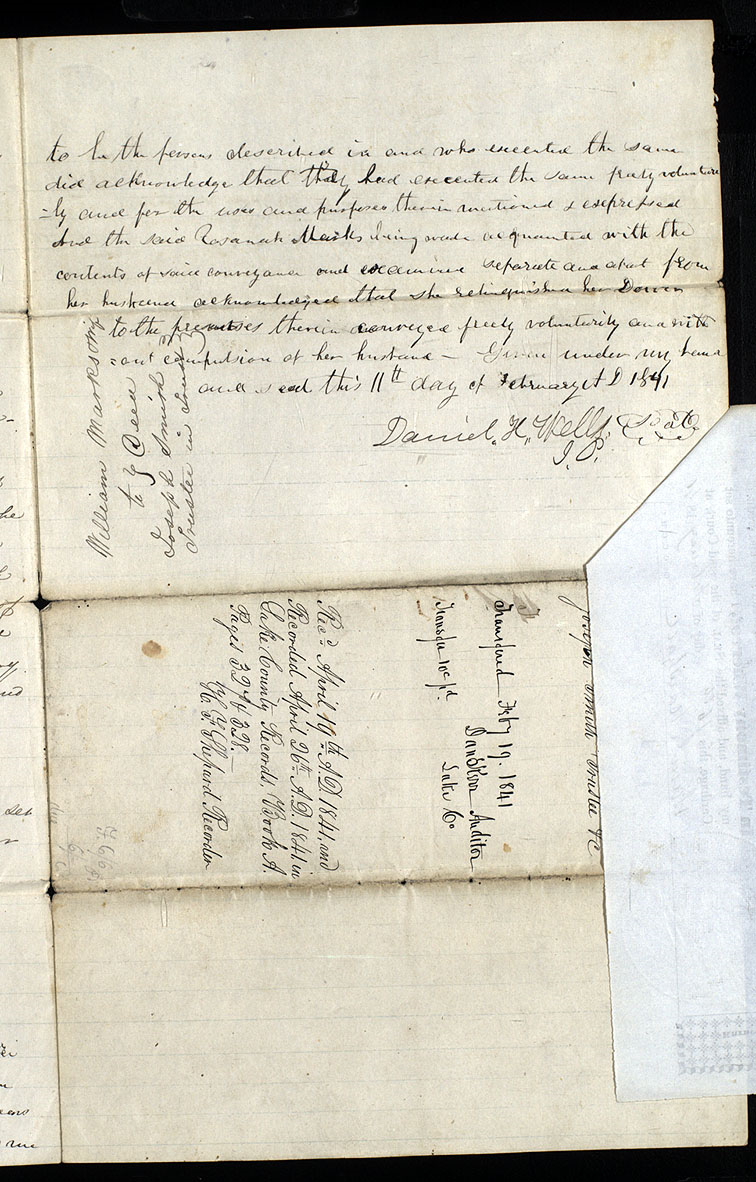 to be the persons described in and who executed the same
did acknowledge that they had executed the same freely voluntari
=ly and for the uses and purposes therein mentioned & expressed
And the said Rosanah Marks being made acquainted with the
contents of said conveyance and examined separate and apart from
her husband acknowledged that she relinquished her Dower
to the premises therein conveyed freely voluntarily and with
=out compulsion of her husband – Given under my hand
and seal this 11th day of February A D 1841
Daniel, H, Wells, Seal
J. P.
William Marks
to } Deed
Joseph Smith
Trustee in Trust
Joseph Smith Trustee &c
Transfered Feby 19. 1841
Auditor
Lake Co
Transfer 10c pd
Rec.d April 19th A.D. 1841, and
Recorded April 26th A.D. 1841 in
Lake County Records, Book A.
Pages 327 & 328.
Shepard Recorder